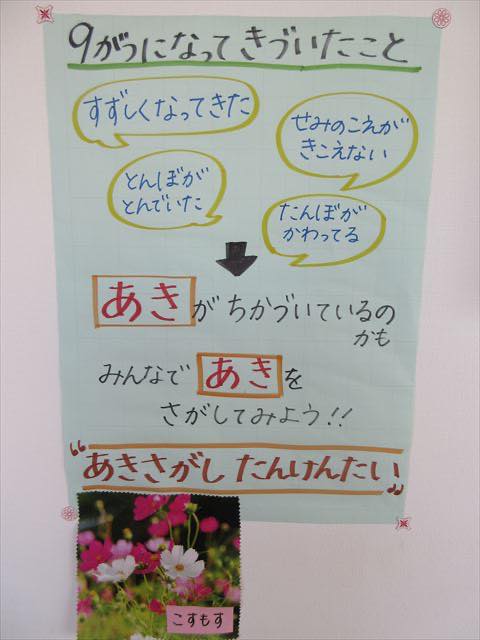 9がつになって きづいたこと
すずしくなってきた
せみのこえが
きこえない
とんぼが
とんでいた
たんぼが
かわってる
あきが ちかづいているの
かも
みんなで あきを
さがしてみよう!!
“あきさがし たんけんたい„
こすもす